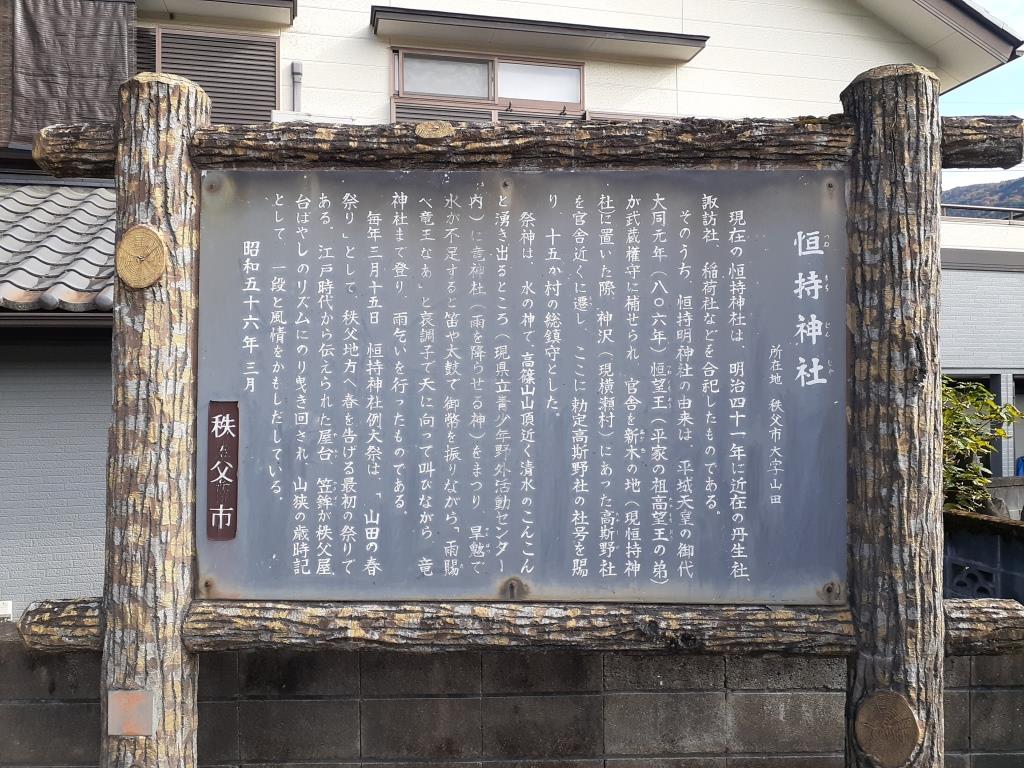 恒持神社
つね もち じん じゃ
所在地 秩父市大字山田
現在の恒持神社は、明治四十一年に近在の丹生社、
諏訪社、稲荷社などを合祀したものである。
そのうち、恒持明神社の由来は、平城天皇の御代
大同元年(八〇六年)恒望王(平家の祖高望王の弟)
が武蔵権守に補せられ、官舎を新木の地(現恒持神
社)に置いた際、神沢(現横瀬村)にあった高斯野社
を官舎近くに遷し、ここに勅定高斯野社の社号を賜
り、十五か村の総鎮守とした。
祭神は、水の神で、高篠山山頂近く清水のこんこん
と湧き出るところ(現県立青少年野外活動センター
内)に竜神社(雨を降らせる神)をまつり、旱魃で
水が不足すると笛や太鼓で御幣を振りながら、「雨賜
べ竜王なあ」と哀調子で天に向って叫びながら、竜
神社まで登り、雨乞いを行ったものである。
毎年三月十五日、恒持神社例大祭は、「山田の春
祭り」として、秩父地方へ春を告げる最初の祭りで
ある。江戸時代から伝えられた屋台、笠鉾が秩父屋
台ばやしのリズムにのり曳き回され、山狭の歳時記
として、一段と風情をかもしだしている。
昭和五十六年三月
秩父市